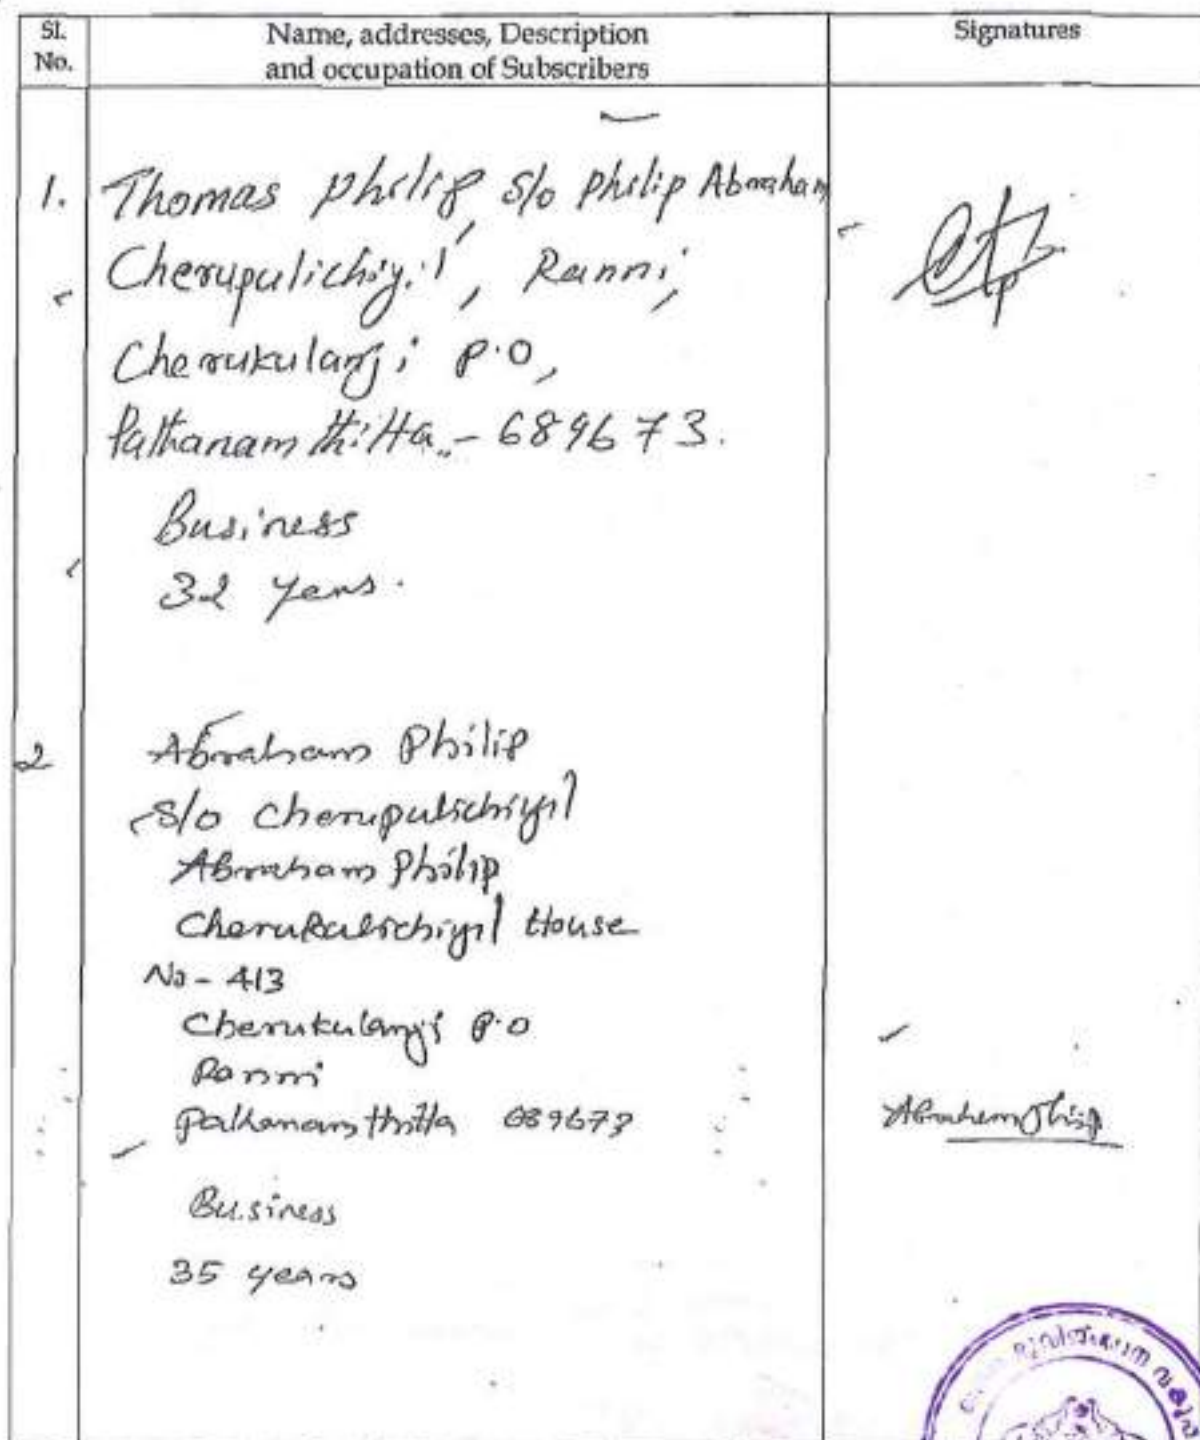 Sl. No.
Name, addresses, Description and occupation of Subscribers
Signatures
1. Thomas Philip, S/o Philip Abraham
Cherupulichiyil, Ranni,
Cherukulanji P.O,
Pathanamthitta - 689673.
Business
32 Years.
2 Abraham Philip
S/o Cherupulichiyil
Abraham Philip
Cherukalichiyil House
No - 413
Cherukulanji P.O
Ranni
Pathanamthitta 689673
Abraham Philip
Business
35 years